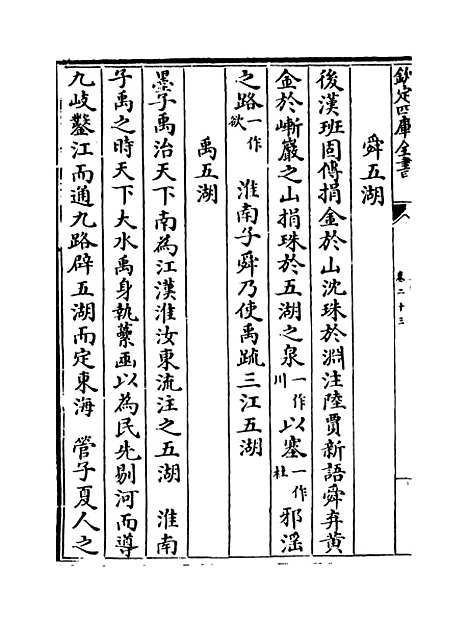 欽定四庫全書
卷二十三
舜五湖
後漢班固傳捐金於山沈珠於淵注陸賈新語舜弃黄
金於嶄巖之山捐珠於五湖之泉一作川以塞一作杜邪滛
之路一作欲　淮南子舜乃使禹疏三江五湖
禹五湖
墨子禹治天下南為江漢淮汝東流注之五湖　淮南
子禹之時天下大水禹身執虆臿以為民先剔河而導
九岐鑿江而通九路辟五湖而定東海　管子夏人之